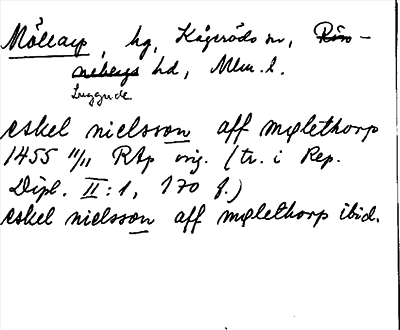 Möllarp, hg, Kågeröds sn, Rön-
nebergs hd, Mlm. l.
Luggude
eskel nielsson aff møllethorp
1455 11/11 RAp orig. (tr. i Rep.
Dipl. II:1, 170 f.)
eskel nielsson aff møllethorp ibid.